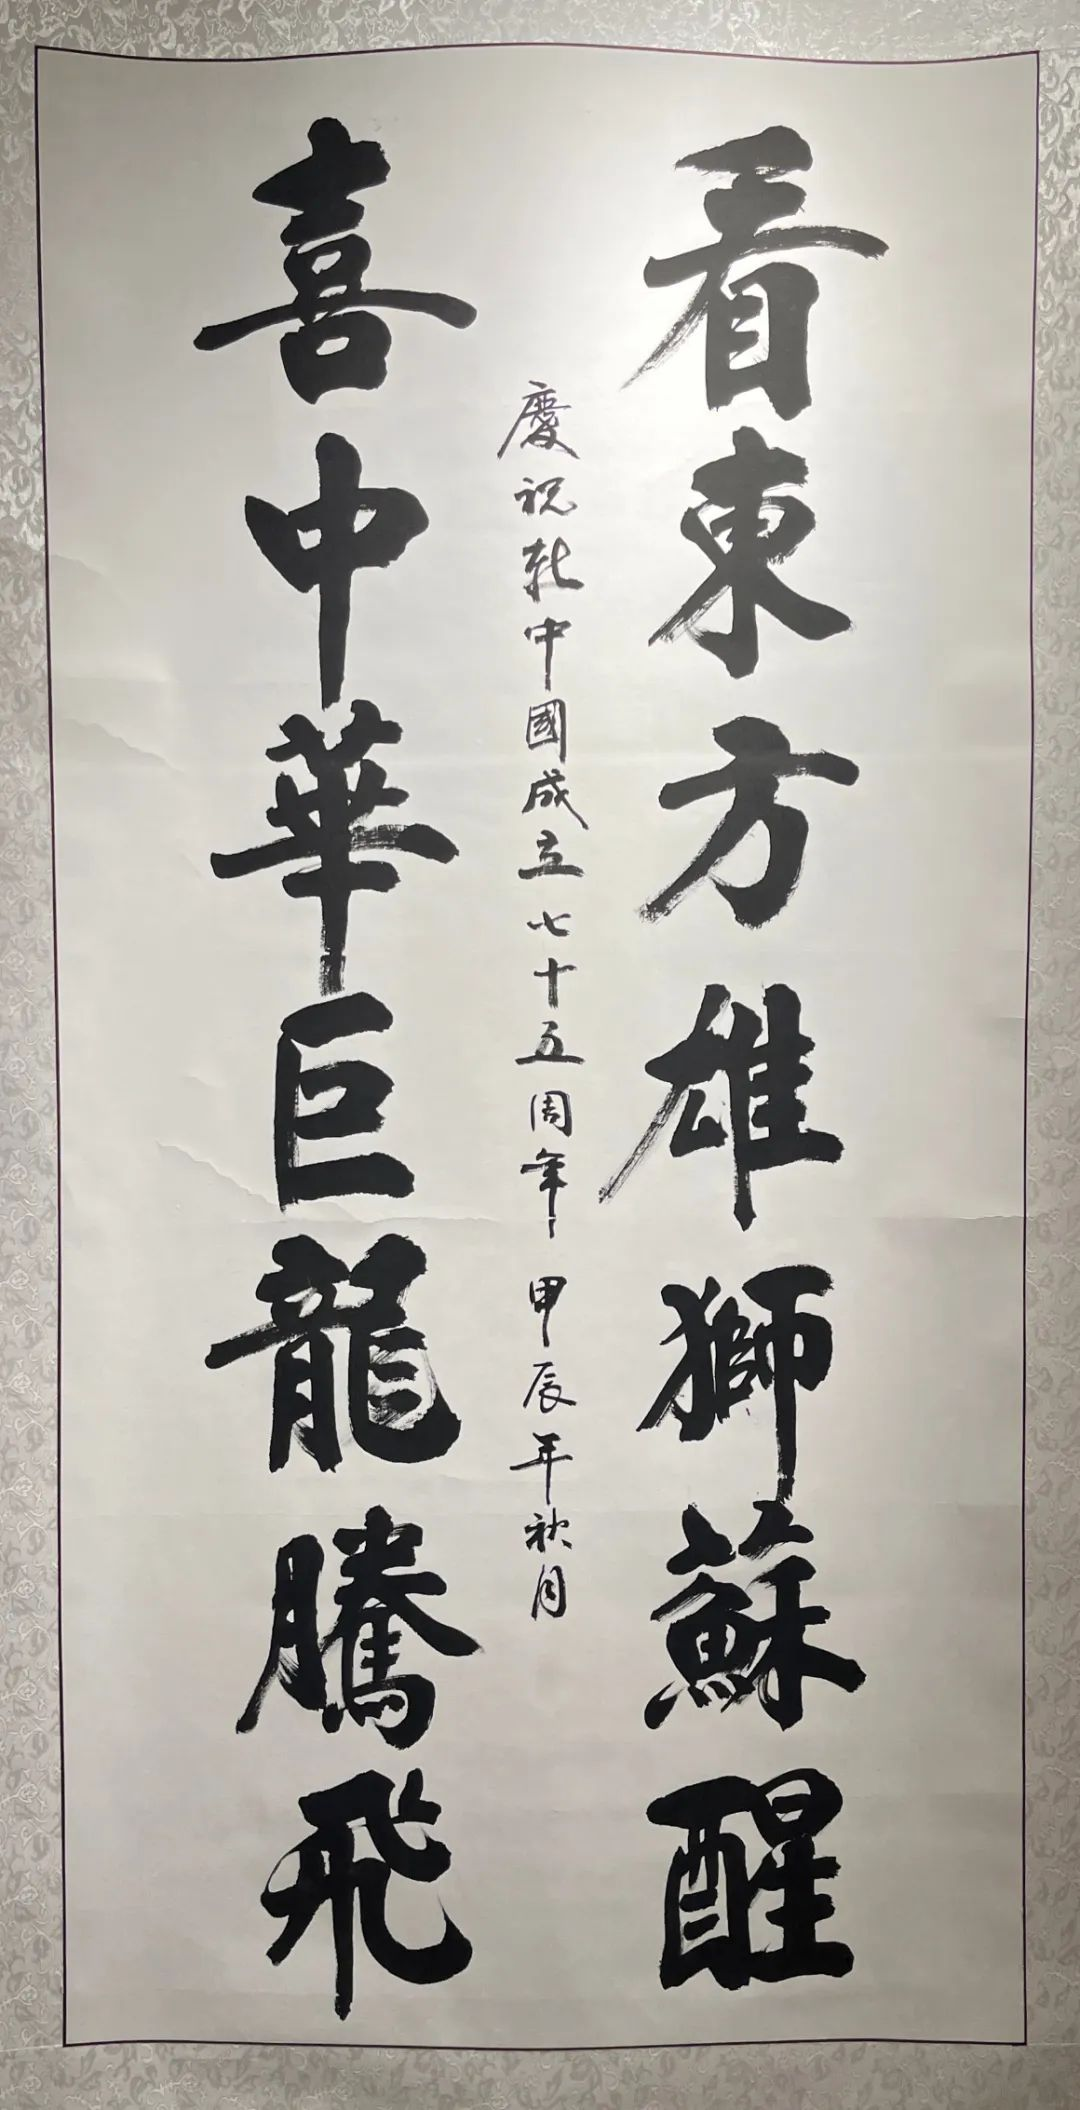 看東方雄獅蘇醒
慶祝新中國成立七十五周年 甲辰年秋月
喜中華巨龍騰飛